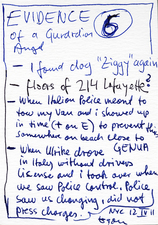 EVIDENCE
6
of a Guardian
Angel
- I found dog "Ziggy" again
- floors of 214 Lafayette?
- When Italian Police meand to
tow my Van and i showed up
in time (+ on E) to prevent this
somewhere on beach close to
- When Ulrike drove GENUA
in Italy without drivers
License and i took over when
we saw Police Control. Police
saw us changing, did not
press charges.
NYC 12 IV 11